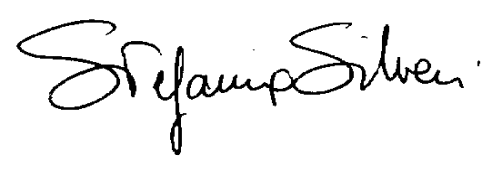 Stefania Silveri